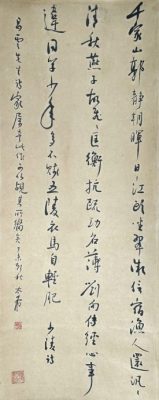 千家山郭靜朝暉日日江樓坐翠微信宿漁人還汎汎
清秋燕子故飛飛匡衡抗疏功名薄劉向傳經心事
違同學少年多不賤五陵衣馬自輕肥 少陵詩
雲先生詩家屬 丁未初秋